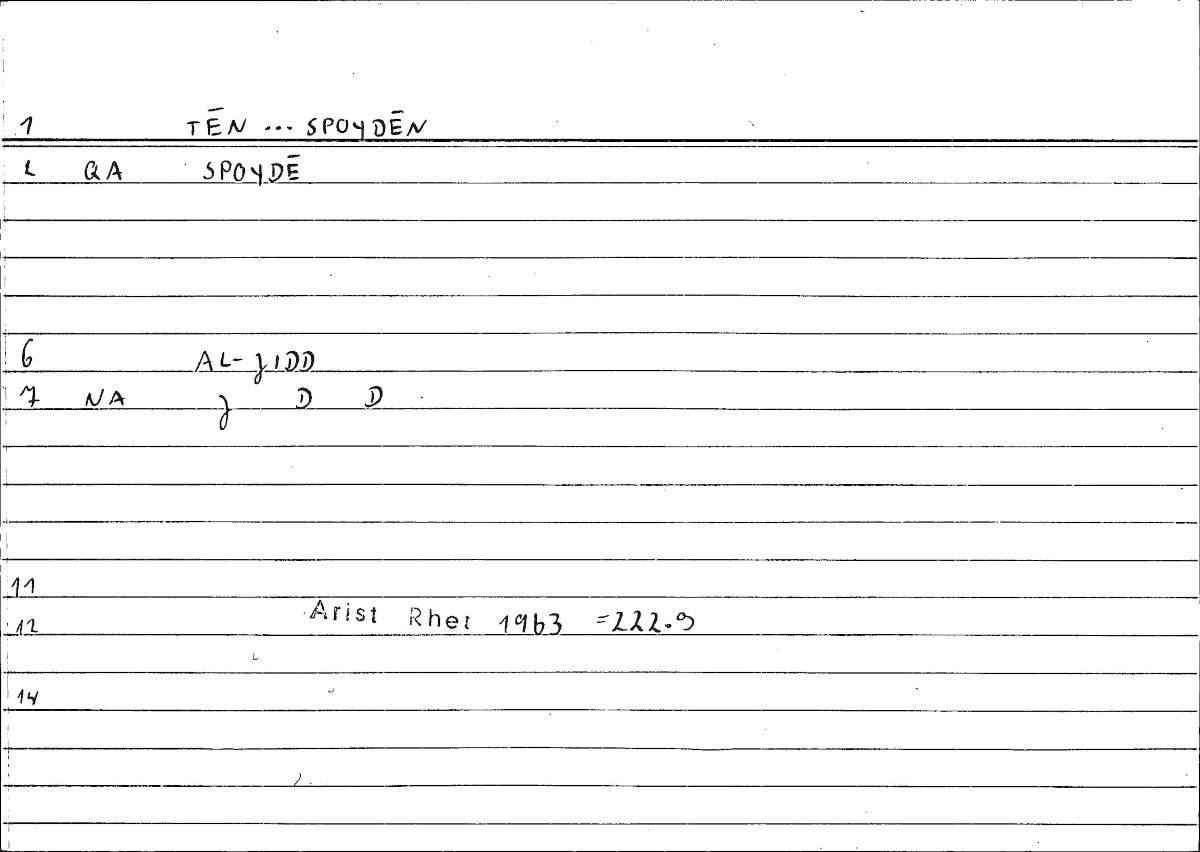 1 TĒN ... SPOYDĒN
2 QA SPOYDĒ
6 AL-ȷIDD
7 NA ȷ D D
11
12 Arist Rhet 1963 =222.9
14